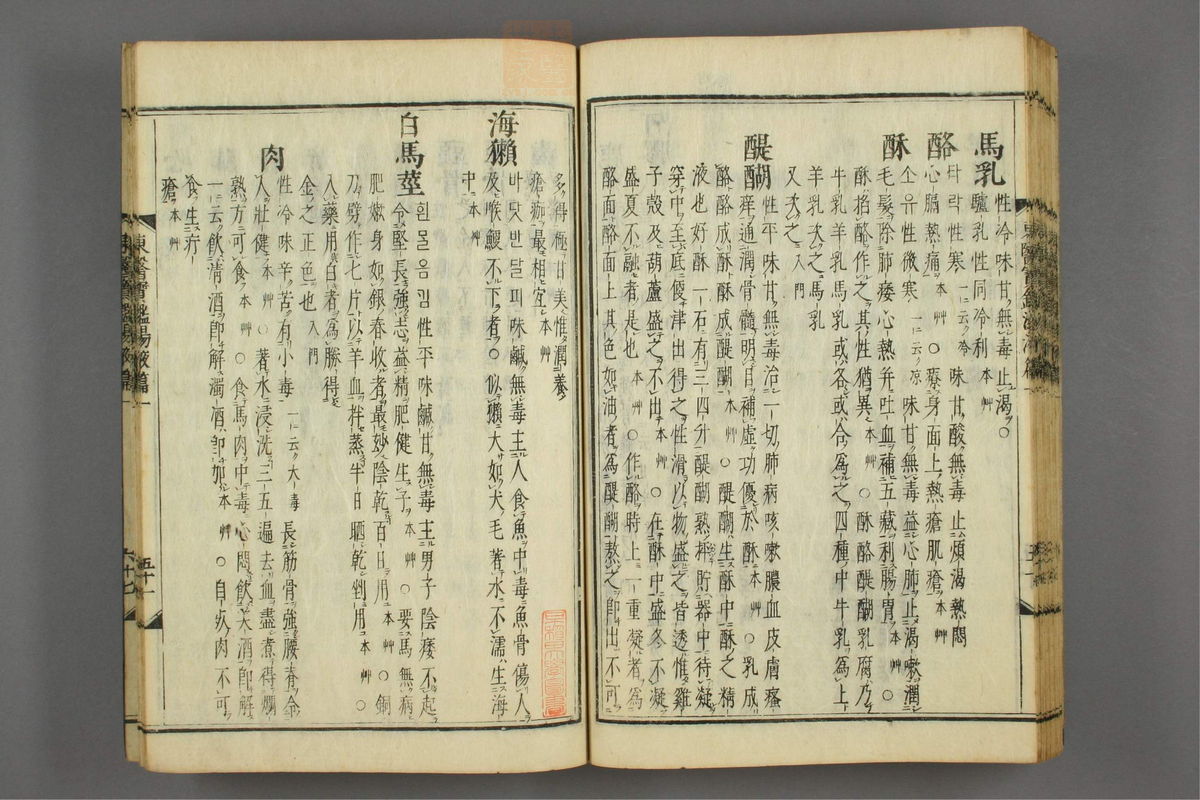 馬乳 性冷味甘無毒止渴○
驢乳性同冷利本艸
酪 타락性寒一云冷味甘酸無毒止煩渴熱悶
心膈熱痛本艸○療身面上熱瘡肌瘡本艸
酥 소유性微寒一云凉味甘無毒益心肺止渴嗽潤
毛髮除肺痿心熱幷吐血補五藏利腸胃本艸○
酥掐酪作之其性猶異本艸○酥酪醍醐乳腐乃
牛乳羊乳馬乳或各或合爲之四種中牛乳爲上
羊乳次之馬乳
又次之入門
醍醐 性平味甘無毒治一切肺病咳嗽膿血皮膚瘙
痒通潤骨髓明目補虛功優於酥本艸○乳成
酪酪成酥酥成醍醐本艸○醍醐生酥中酥之精
液也好酥一石有三四升醍醐熟抨貯器中待凝
穿中至底便津出得之性滑以物盛之皆透惟雞
子殼及葫蘆盛之不出本艸○在酥中盛冬不凝
盛夏不融者是也本艸○作酪時上一重凝者爲
酪面酪面上其色如油者爲醍醐熬之卽出不可
多得極甘美惟潤養
瘡痂最相宜本艸
海獺 바닷반달피味鹹無毒主人食魚中毒魚骨傷人
及喉鯁不下者○似獺大如犬毛着水不濡生海
中本艸
白馬莖 흰ᄆᆞᆯ음깅性平味鹹甘無毒主男子陰痿不起
令堅長強志益精肥健生子本艸○要馬無病
肥嫩身如銀春收者最妙陰乾百日用本艸○銅
刀劈作七片以羊血拌蒸半日晒乾剉用本艸○
入藥用白者爲勝得
金之正色也入門
肉 性冷味辛苦有小毒一云大毒長筋骨強腰脊令
人壯健本艸○着水浸洗三五遍去血盡煮得爛
熟方可食本艸○食馬肉中毒心悶飮美酒卽解
一云飮淸酒卽解濁酒卽加本艸○自死肉不可
食生疔
瘡本艸
東醫寶鑑湯液篇一
五十一
六十七